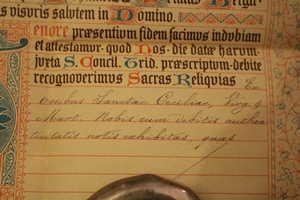 Belgii
visuris salutem in Domino.
Tenore præsentium fidem facimus indubiam
et attestamur quod Nos die datæ harum
juxta S. Concil. Trid. præscriptum debite
recognoverimus Sacras Reliquias Ex
ossibus Sanctae Ceciliae, Virg. &
Mart. Nobis cum debitis authen
ticitatis notis exhibitas, quas